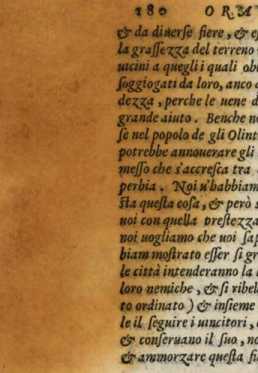 180 ORAT
& da diuerse fiere, & es
la grassezza del terreno
uicini a quegli i quali ob
soggiogati da loro, anco
dezza, perche le uene d
grande aiuto. Benche no
se nel popolo de gli Olint
potrebbe annouerare gli
messo che s'accresca tra
perbia. Noi u'habbiam
sta questa cosa, & però s
uoi con quella prestezza
noi uogliamo che uoi sap
biam mostrato esser sì gr
le città intenderanno la l
loro nemiche, & si ribel
to ordinato) & insieme
le il seguire i uincitori,
& conseruano il suo, no
& ammorzare questa fi